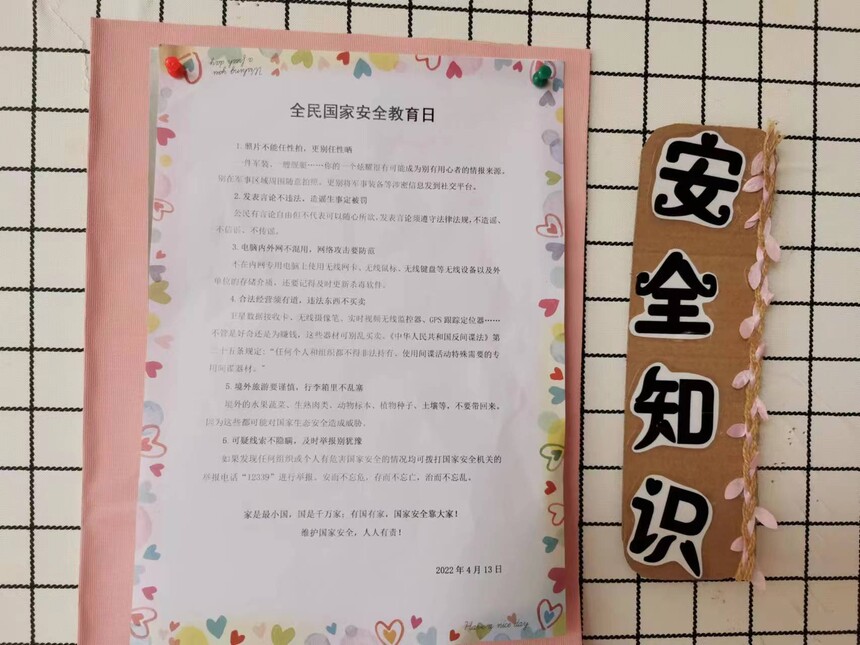 全民国家安全教育日
1.照片不能任性拍，更别任性晒
一件军装、一艘舰艇……你的一个炫耀即有可能成为别有用心者的情报来源，
别在军事区域周围随意拍照，更别将军事装备等涉密信息发到社交平台。
2.发表言论不违法，造谣生事定被罚
公民有言论自由但不代表可以随心所欲，发表言论须遵守法律法规，不造谣、
不信谣、不传谣。
3.电脑内外网不混用，网络攻击要防范
不在内网专用电脑上使用无线网卡、无线鼠标、无线键盘等无线设备以及外
单位的存储介质，还要记得及时更新杀毒软件。
4.合法经营须有道，违法东西不买卖
卫星数据接收卡、无线摄像笔、实时视频无线监控器、GPS跟踪定位器……
不管是好奇还是为赚钱，这些器材可别乱买卖。《中华人民共和国反间谍法》第
二十五条规定：“任何个人和组织都不得非法持有、使用间谍活动特殊需要的专
用间谍器材。”
5.境外旅游要谨慎，行李箱里不乱塞
境外的水果蔬菜、生熟肉类、动物标本、植物种子、土壤等，不要带回来，
因为这些都可能对国家生态安全造成威胁。
6.可疑线索不隐瞒，及时举报别犹豫
如果发现任何组织或个人有危害国家安全的情况均可拨打国家安全机关的
举报电话“12339”进行举报。安而不忘危，存而不忘亡，治而不忘乱。
家是最小国，国是千万家；有国有家，国家安全靠大家！
维护国家安全，人人有责！
2022年4月13日
Have a nice day
安全知识